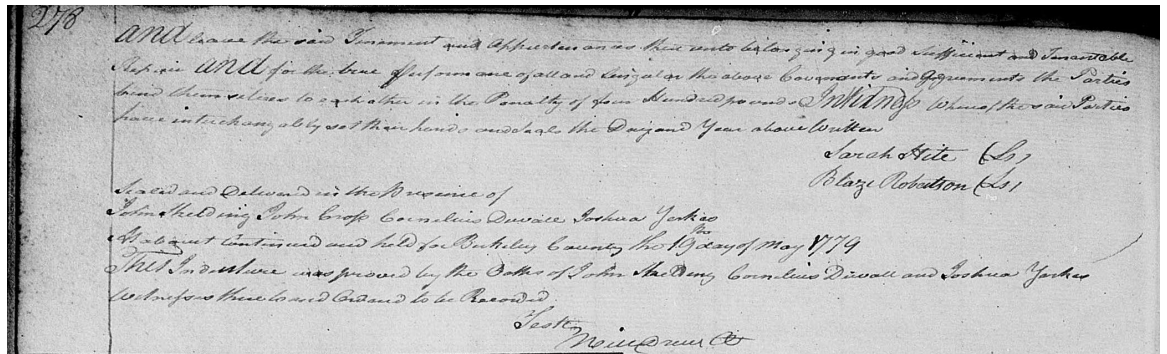 278
And leave the said Tenement and Appurtenances thereunto belonging in good Sufficient and Tenantable
Repair And for the true performance of all and Singular the above Covenants and Agreements the Parties
bind themselves to each other in the Penalty of four Hundred pounds In Witness Whereof the said Parties
have interchangably set their hands and Seals the Day and Year above Written
Sarah Hite (Ls)
Blaze Robertson (Ls)
Sealed and Delivered in the Presence of
John Shelding John Cross Cornelius Duvall Joshua Yorkes
At a Court Continued and held for Berkeley County the 19 day of May 1779
This Indenture was proved by the Oaths of John Shelding Cornelius Duvall and Joshua Yorkes
Witnesses thereto and Ordered to be Recorded
Test
Will Drew